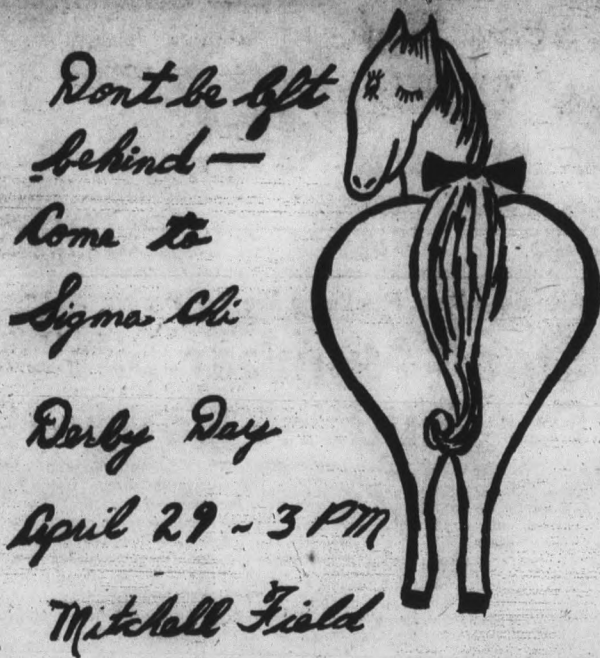 Dont be left
behind —
Come to
Sigma Chi
Derby Day
April 29 ~ 3 PM
Mitchell Field